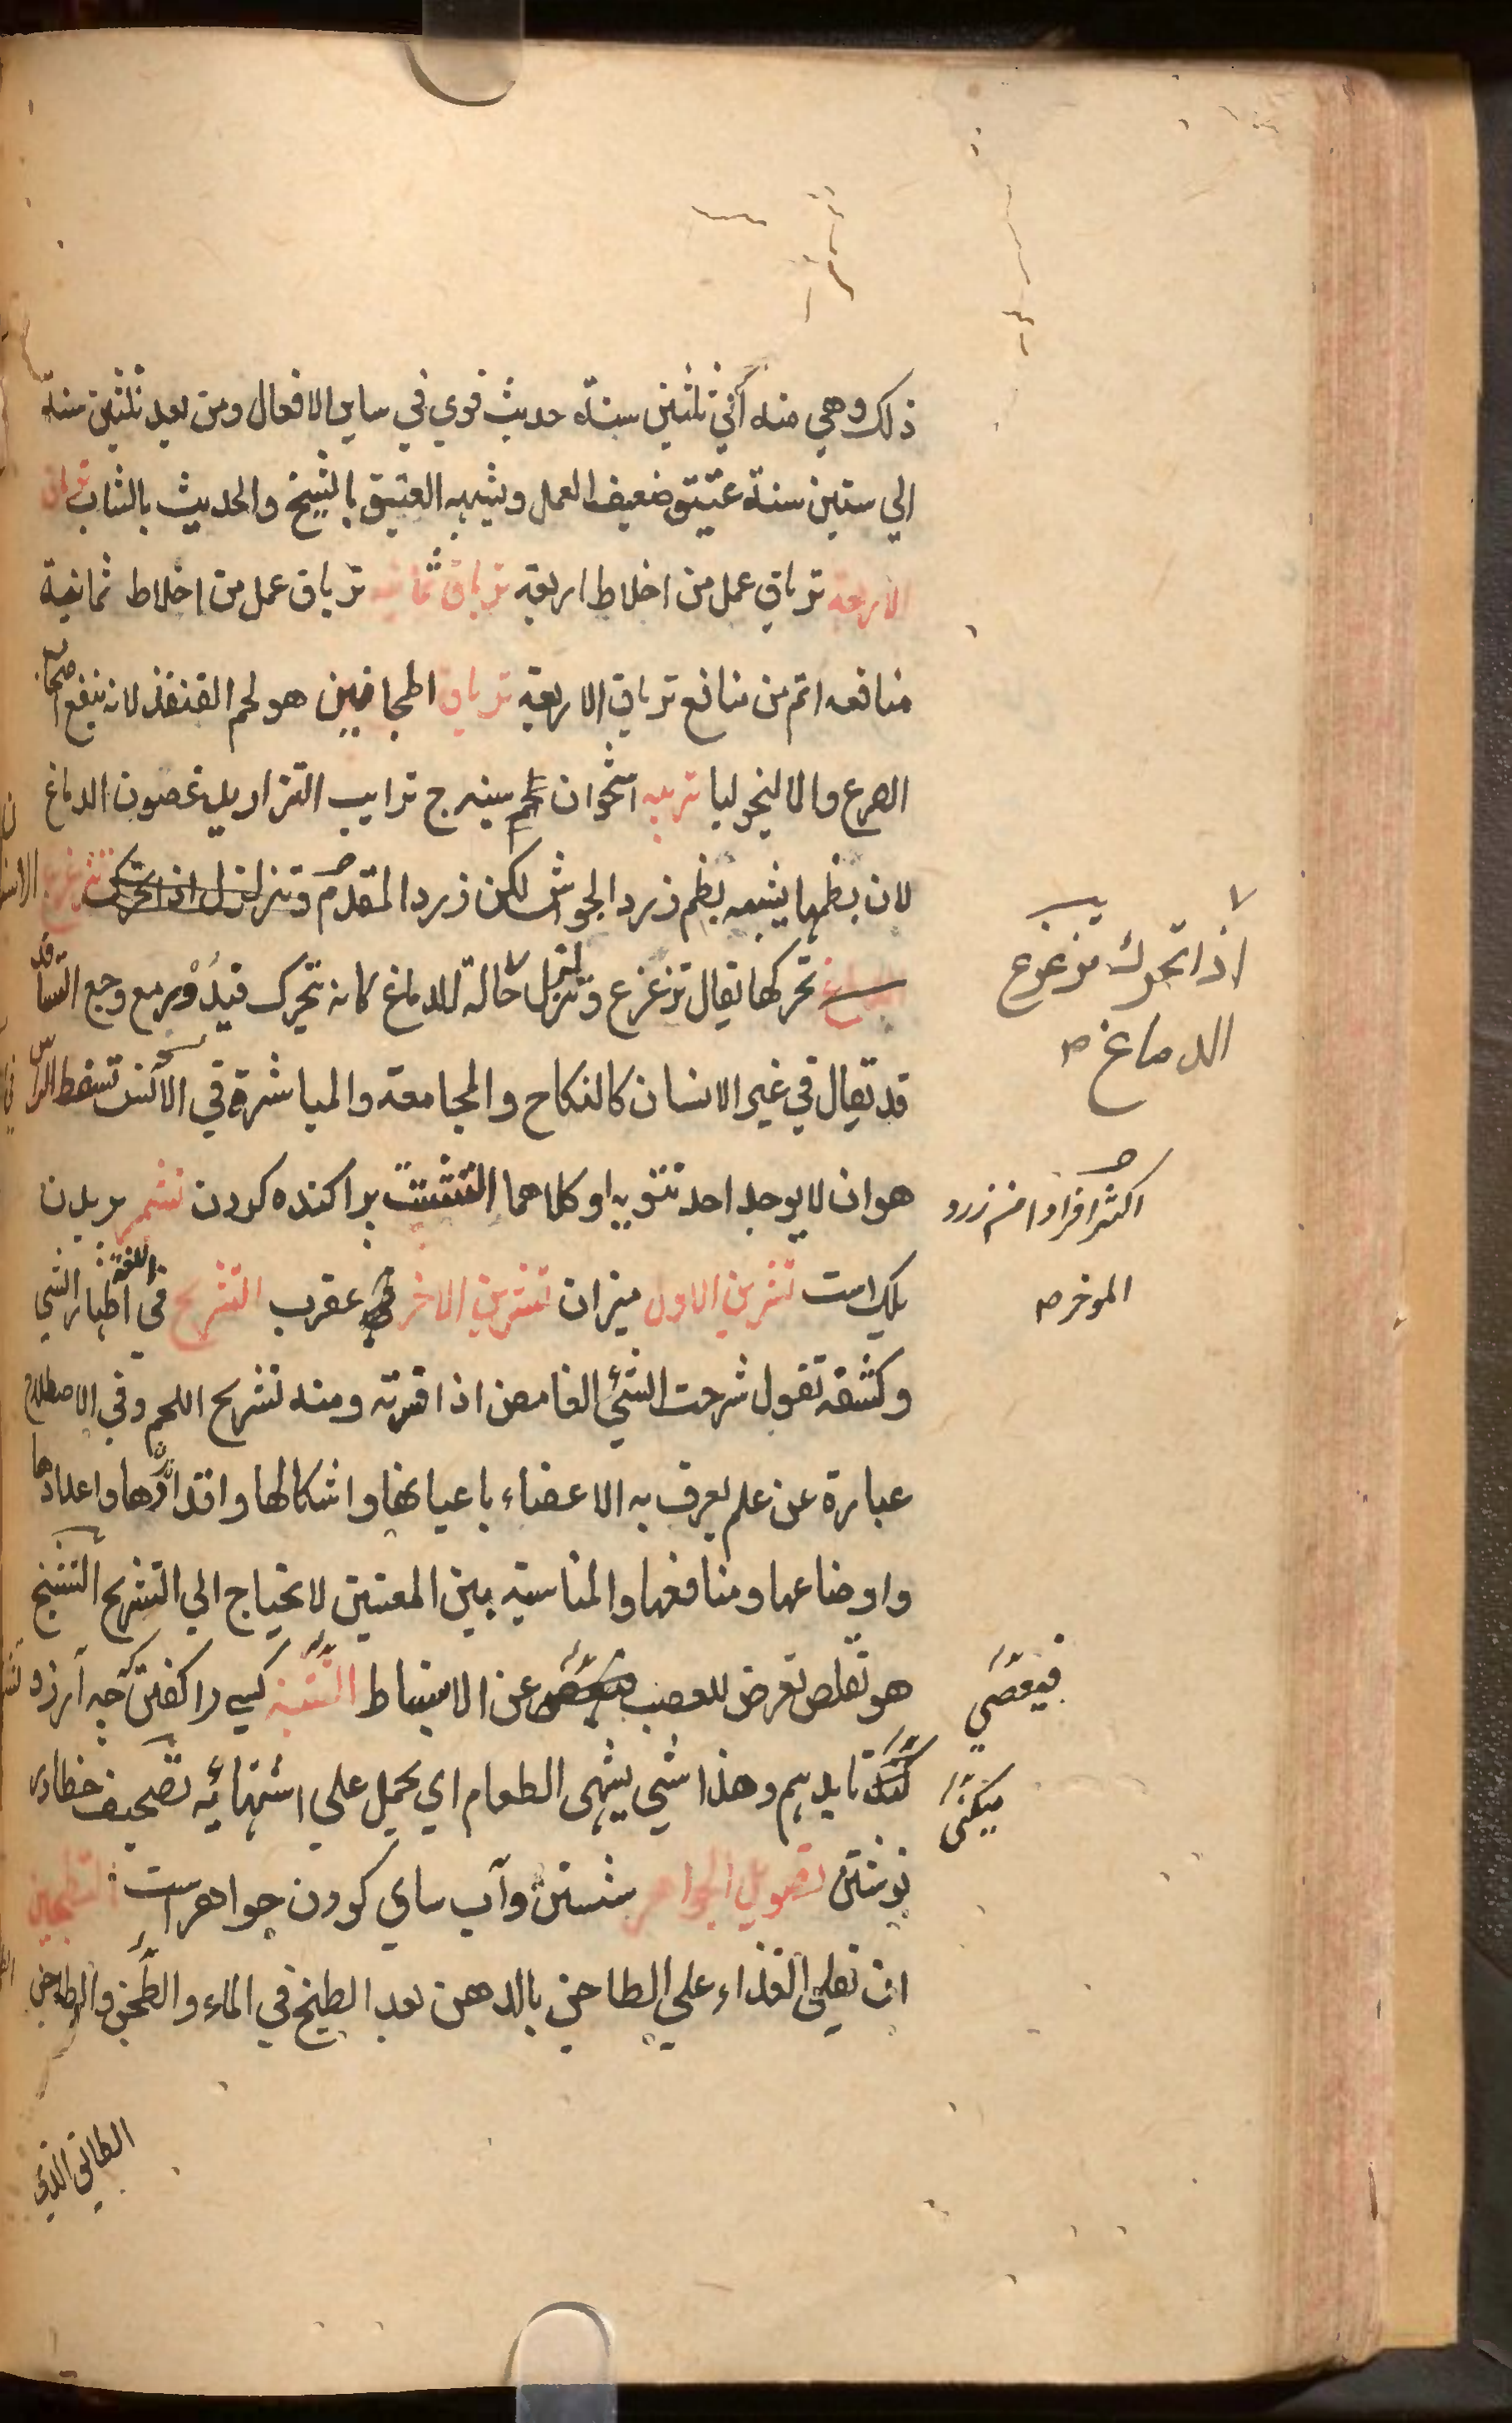 ذلك وهي منه آلي ثلثين سنة حديث قوي في ساير الافعال ومن بعد ثلثين سنة
الي ستين سنة عتيق ضعيف العمل ويشبه العتيق بالشيخ والحديث بالشاب ترياق
الاربعه ترياق عمل من اخلاط اربعه ترياق ثمانيه ترياق عمل من اخلاط ثمانية
منافعه اتم من منافع ترياق الاربعة ترياق المجانين هو لحم القنفذ لانه ينفع اصحاب
الصرع والماليخوليا تريبه استخوان سينه ج ترايب التزاريد غضون الدماغ
لان نظمها يشبه نظم زرد الجوشن لكن زرد المقدم وتزلزل اذا تحرك تزعزع
الدماغ تحركها يقال تزعزع وتزلزل حالة للدماغ كانه يتحرك فيدور مع وجع التسافد
قد يقال في غير الانسان كالنكاح والمجامعة والمباشرة في الانس تسفط الراس
هو ان لا يوجد احد نتويه او كلاهما التشتت براكنده كردن تشمر بريدن
پلك است تشرين الاول ميزان تشرين الاخر عقرب التشريح في اللغة اظهار الشي
وكشفه تقول شرحت الشئ الغامض اذا فسرته ومنه تشريح اللحم وفي الاصطلاح
عبارة عن علم يعرف به الاعضاء باعيانها واشكالها واقدارها واعدادها
واوضاعها ومنافعها والمناسبة بين المعنيين لا يحتاج الي التشريح التشنج
هو تقلص يعرض للعصب عن الانبساط التشهية كسي را كفتن كه چه آرزو
تا بدهم وهذا شي يشهى الطعام اي يحمل علي اشتهائه تصحيف خطا در
نوشتن تصويل الجواهر شستن وآب ساي كردن جواهر است التطجين
ان تقلي الغذاء علي الطاجن بالدهن بعد الطبخ في الماء والطجن والطاجن
اذا تحرك تزعزع
الدماغ
اكثر افرادا من زرد
الموخر
فيعصي
ميكني
الطابق الذي